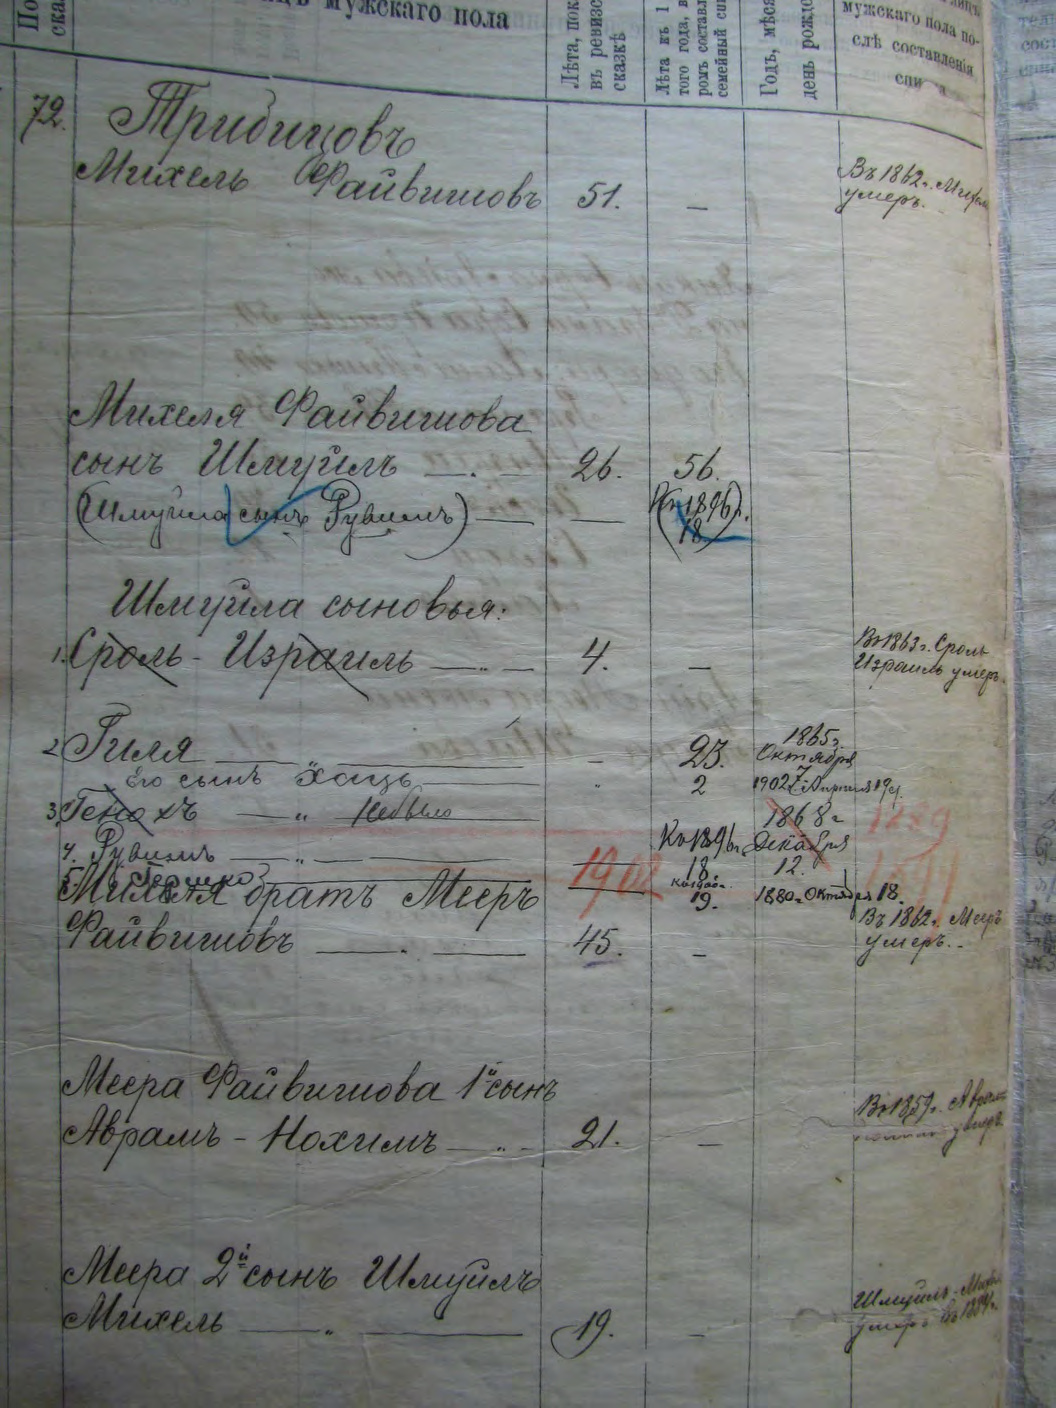 По
ска
мужскаго пола
Лѣта, пок
въ ревизс
сказкѣ
Лѣта къ 1
того года, в
ромъ составл
семейный спи
Годъ, мѣся
день рожде
мужскаго пола по-
слѣ составленія
спи а
72.
Трибицовъ
Михель Файвишовъ 51. —
Въ 1862 г. Михель
умеръ.
Михеля Файвишова
сынъ Шмуйлъ 26. 56.
(Шмуйла сынъ Рувимъ) — (Къ 1896 г.
18)
Шмуйла сыновья:
1. Сроль - Израиль 4. —
Въ 1863 г. Сроль
Израиль умеръ.
2. Гиля " — 23. 1865 г.
Октября
7
Его сынъ Хаимъ " 2 1902 г. Апрѣля 19 д.
3. Генохъ " Небыло
1868 г
Декабря
12.
1289
4. Рувимъ " Къ 1896 г.
18.
1902
1899
5. Гершко 19. 1880 г. Октября 18.
Михеля братъ Мееръ
Файвишовъ 45. —
Въ 1862 г. Мееръ
умеръ.
Меера Файвишова 1й сынъ
Аврамъ - Нохимъ " 21. —
Въ 1859 г. Аврамъ
умеръ.
Меера 2й сынъ Шмуйлъ
Михель " 19. —
Шмуйлъ - Михель
умеръ въ